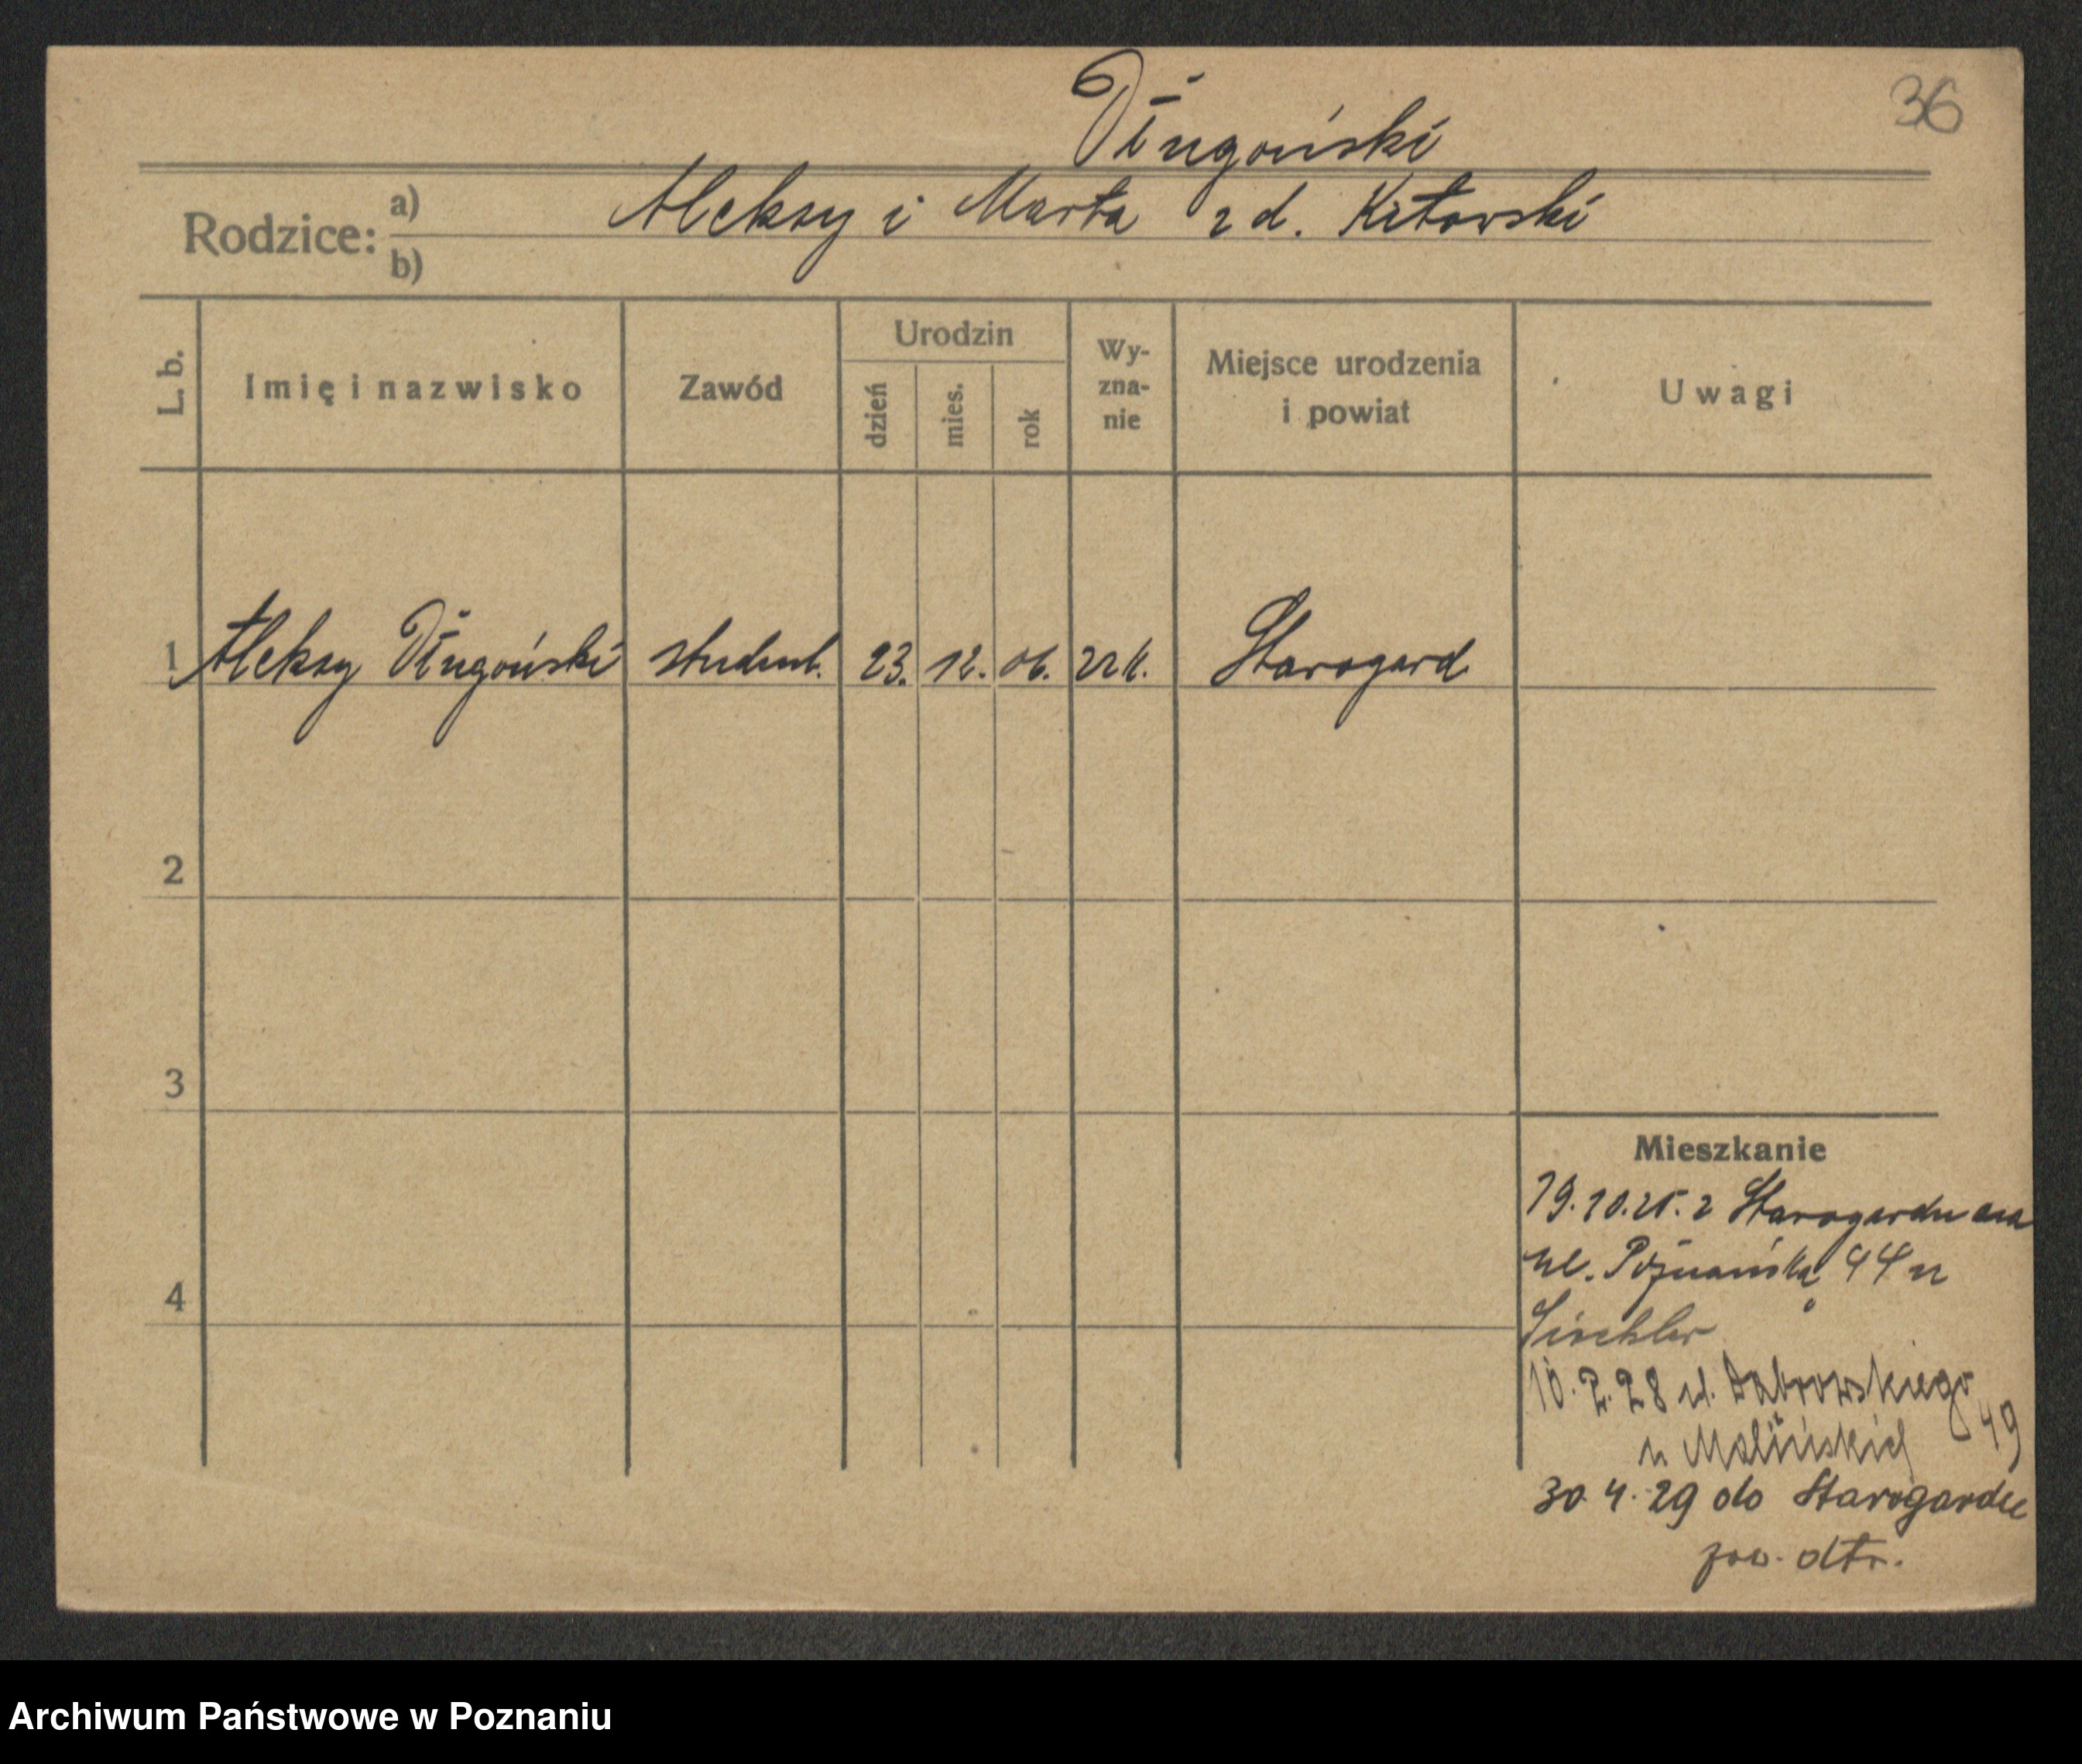 36
Długoński
Rodzice: a) Aleksy i Marta z d. Kitowski
b)
L. b. Imię i nazwisko Zawód Urodzin dzień mies. rok Wyzna-nie Miejsce urodzenia i powiat Uwagi
1 Aleksy Długoński student. 23. 12. 06. rzk. Starogard
2
3
Mieszkanie
19.10.25. z Starogardu
ul. Poznańska 44 u
4
10. 2. 28 ul. Dąbrowskiego 49
u Malińskich
30 4. 29 do Starogardu
pow. dto.
Archiwum Państwowe w Poznaniu